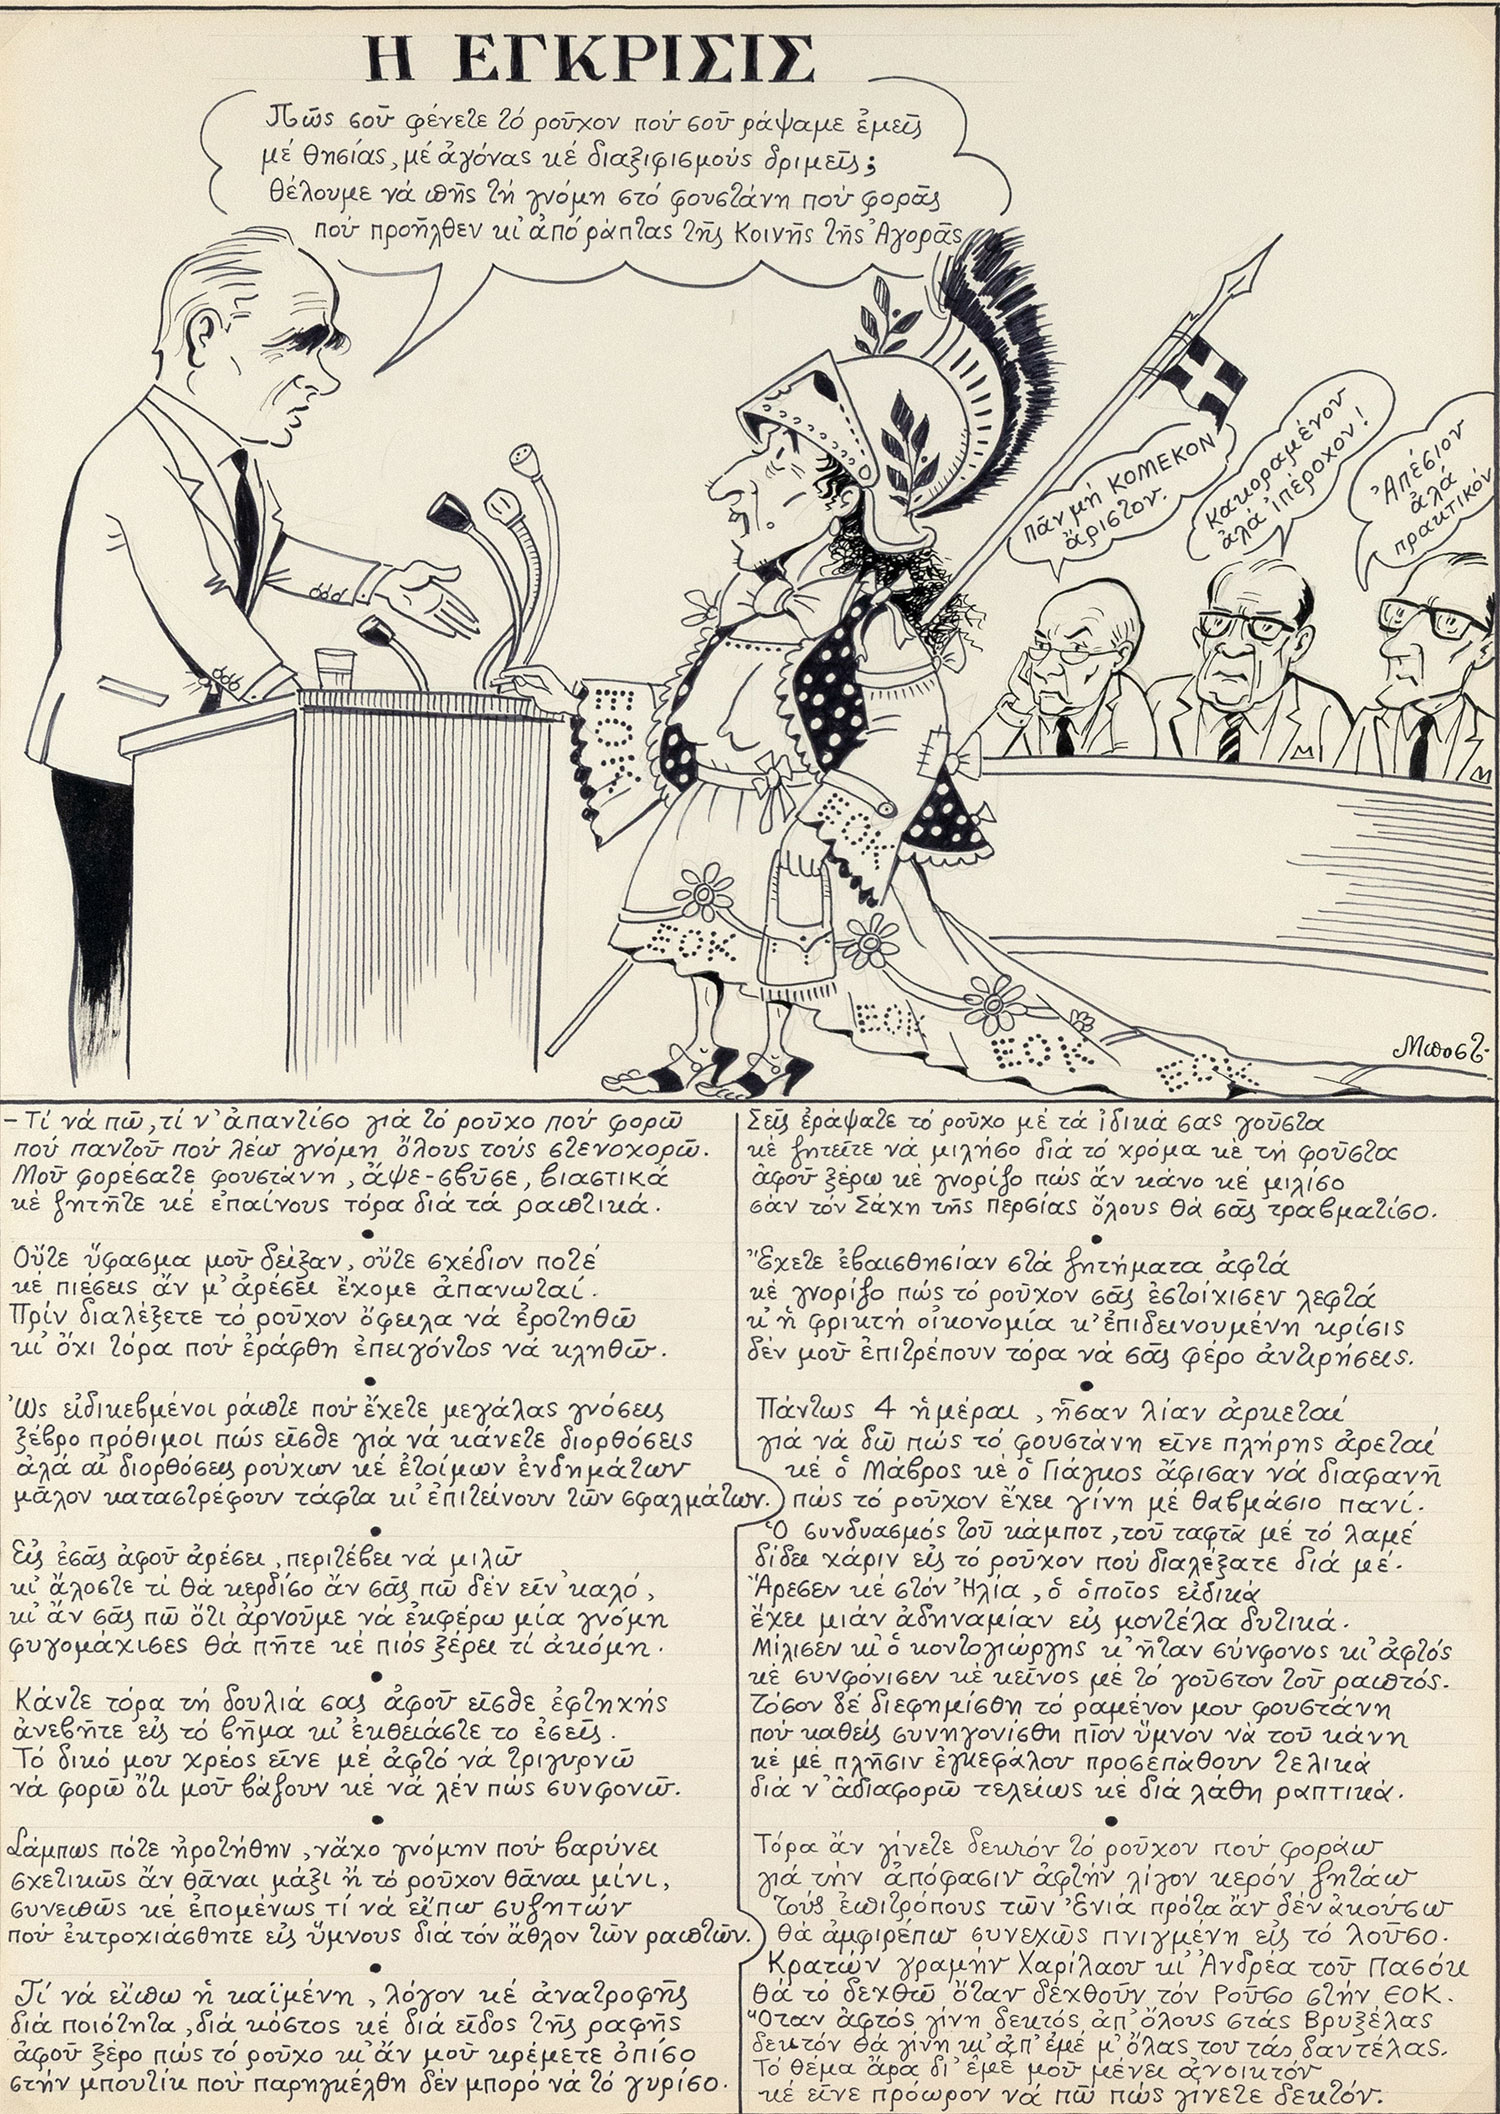 Η ΕΓΚΡΙΣΙΣ
Πῶς σοῦ φένετε τό ροῦχον πού σοῦ ράψαμε ἐμεῖς
μέ θησίας, μέ ἀγόνας κέ διαξιφισμούς δριμεῖς;
θέλουμε νά πῆς τή γνόμη στό φουστάνη πού φορᾶς
πού προῆλθεν κι' ἀπό ράπτας τῆς Κοινῆς τῆς Ἀγορᾶς
πᾶν μή ΚΟΜΕΚΟΝ
ἄριστον.
Κακοραμένον
ἀλά ἰπέροχον!
Ἀπέσιον
ἀλά
πρακτικόν
ΕΟΚ
ΕΟΚ
ΕΟΚ
ΕΟΚ
ΕΟΚ
ΕΟΚ
Μποστ-
- Τί νά πῶ, τί ν' ἀπαντίσο γιά τό ροῦχο πού φορῶ
πού παντοῦ πού λέω γνόμη ὅλους τούς στενοχορῶ.
Μοῦ φορέσατε φουστάνη, ἄψε-σβῦσε, βιαστικά
κέ ζητῆτε κέ ἐπαίνους τόρα διά τά ραπτικά.
Οὔτε ὕφασμα μοῦ δεῖξαν, οὔτε σχέδιον ποτέ
κέ πιέσεις ἄν μ' ἀρέσει ἔχομε ἀπανωταί.
Πρίν διαλέξετε τό ροῦχον ὄφειλα νά ἐροτηθῶ
κι' ὄχι τόρα πού ἐράφθη ἐπειγόντος νά κληθῶ.
Ὡς εἰδικεβμένοι ράπτε πού ἔχετε μεγάλας γνόσεις
ξέβρο πρόθιμοι πώς εἶσθε γιά νά κάνετε διορθόσεις
ἀλά αἱ διορθόσεις ρούχων κέ ἑτοίμων ἐνδημάτων
μᾶλον καταστρέφουν τάφτα κι' ἐπιτείνουν τῶν σφαλμάτων.
Εἰς ἐσᾶς ἀφοῦ ἀρέσει, περιτέβει νά μιλῶ
κι' ἄλοστε τί θά κερδίσο ἄν σᾶς πῶ δέν εἶν' καλό,
κι' ἄν σᾶς πῶ ὅτι ἀρνοῦμε νά ἐκφέρω μία γνόμη
φυγομάχισες θά πῆτε κέ πιός ξέρει τί ἀκόμη.
Κάντε τόρα τή δουλιά σας ἀφοῦ εἶσθε ἐφτηχής
ἀνεβῆτε εἰς τό βῆμα κι' ἐκθειάστε το ἐσεῖς.
Τό δικό μου χρέος εἶνε μέ ἀφτό νά τριγυρνῶ
νά φορῶ ὅτι μοῦ βάζουν κέ νά λέν πώς συνφονῶ.
Σάμπως πότε ἠροτήθην, νἄχο γνόμην πού βαρύνει
σχετικῶς ἄν θἆναι μάξι ἤ τό ροῦχον θἆναι μίνι,
συνεπῶς κέ ἑπομένως τί νά εἴπω συζητῶν
πού ἐκτροχιάσθητε εἰς ὕμνους διά τόν ἄθλον τῶν ραπτῶν.
Τί νά εἴπω ἡ καϊμένη, λόγον κέ ἀνατροφῆς
διά ποιότητα, διά κόστος κέ διά εἶδος τῆς ραφῆς
ἀφοῦ ξέρο πώς τό ροῦχο κι' ἄν μοῦ κρέμετε ὀπίσο
στήν μπουτίκ πού παρηγκέλθη δέν μπορό νά τό γυρίσο.
Σεῖς ἐράψατε τό ροῦχο μέ τά ἰδικά σας γοῦστα
κέ ζητεῖτε νά μιλήσο διά τό χρόμα κέ τή φοῦστα
ἀφοῦ ξέρω κέ γνορίζο πώς ἄν κάνο κέ μιλίσο
σάν τόν Σάχη τῆς Περσίας ὅλους θά σᾶς τραβματίσο.
Ἔχετε ἐβαισθησίαν στά ζητήματα ἀφτά
κέ γνορίζο πώς τό ροῦχον σᾶς ἐστοίχισεν λεφτά
κ' ἡ φρικτή οἰκονομία κ' ἐπιδεινουμένη κρίσις
δέν μοῦ ἐπιτρέπουν τόρα νά σᾶς φέρο ἀντιρήσεις.
Πάντως 4 ἡμέραι, ἦσαν λίαν ἀρκεταί
γιά νά δῶ πώς τό φουστάνη εἶνε πλήρης ἀρεταί
κέ ὁ Μάβρος κέ ὁ Γιάγκος ἄφισαν νά διαφανῆ
πώς τό ροῦχον ἔχει γίνη μέ θαβμάσιο πανί.
Ὁ συνδυασμός τοῦ κάμποτ, τοῦ ταφτᾶ μέ τό λαμέ
δίδει χάριν εἰς τό ροῦχον πού διαλέξατε διά μέ.
Ἄρεσεν κέ στόν Ἠλία, ὁ ὁποῖος εἰδικά
ἔχει μιάν ἀδηναμίαν εἰς μοντέλα δυτικά.
Μίλισεν κι' ὁ κοντογιώργης κ' ἦταν σύνφονος κι' ἀφτός
κέ συνφόνισεν κέ κεῖνος μέ τό γοῦστον τοῦ ραπτός.
Τόσον δέ διεφημίσθη τό ραμένον μου φουστάνη
πού καθείς συνηγονίσθη πῖον ὕμνον νά τοῦ κάνη
κέ μέ πλῆσιν ἐγκεφάλου προσεπάθουν τελικά
διά ν' ἀδιαφορῶ τελείως κέ διά λάθη ραπτικά.
Τόρα ἄν γίνετε δεκτόν τό ροῦχον πού φοράω
γιά τήν ἀπόφασιν ἀφτήν λίγον κερόν ζητάω
τούς ἐπιτρόπους τῶν Ἐνιά πρότα ἄν δέν ἀκούσω
θά ἀμφιρέπω συνεχῶς πνιγμένη εἰς τό λοῦσο.
Κρατῶν γραμήν Χαρίλαου κι' Ἀνδρέα τοῦ Πασόκ
θά τό δεχθῶ ὅταν δεχθοῦν τόν Ροῦσο στήν ΕΟΚ.
Ὅταν ἀφτός γίνη δεκτός ἀπ' ὅλους στάς Βρυξέλας
δεκτόν θά γίνη κι' ἀπ' ἐμέ μ' ὅλας του τάς δαντέλας.
Τό θέμα ἄρα δι' ἐμέ μοῦ μένει ἀνοικτόν
κέ εἶνε πρόωρον νά πῶ πώς γίνετε δεκτόν.